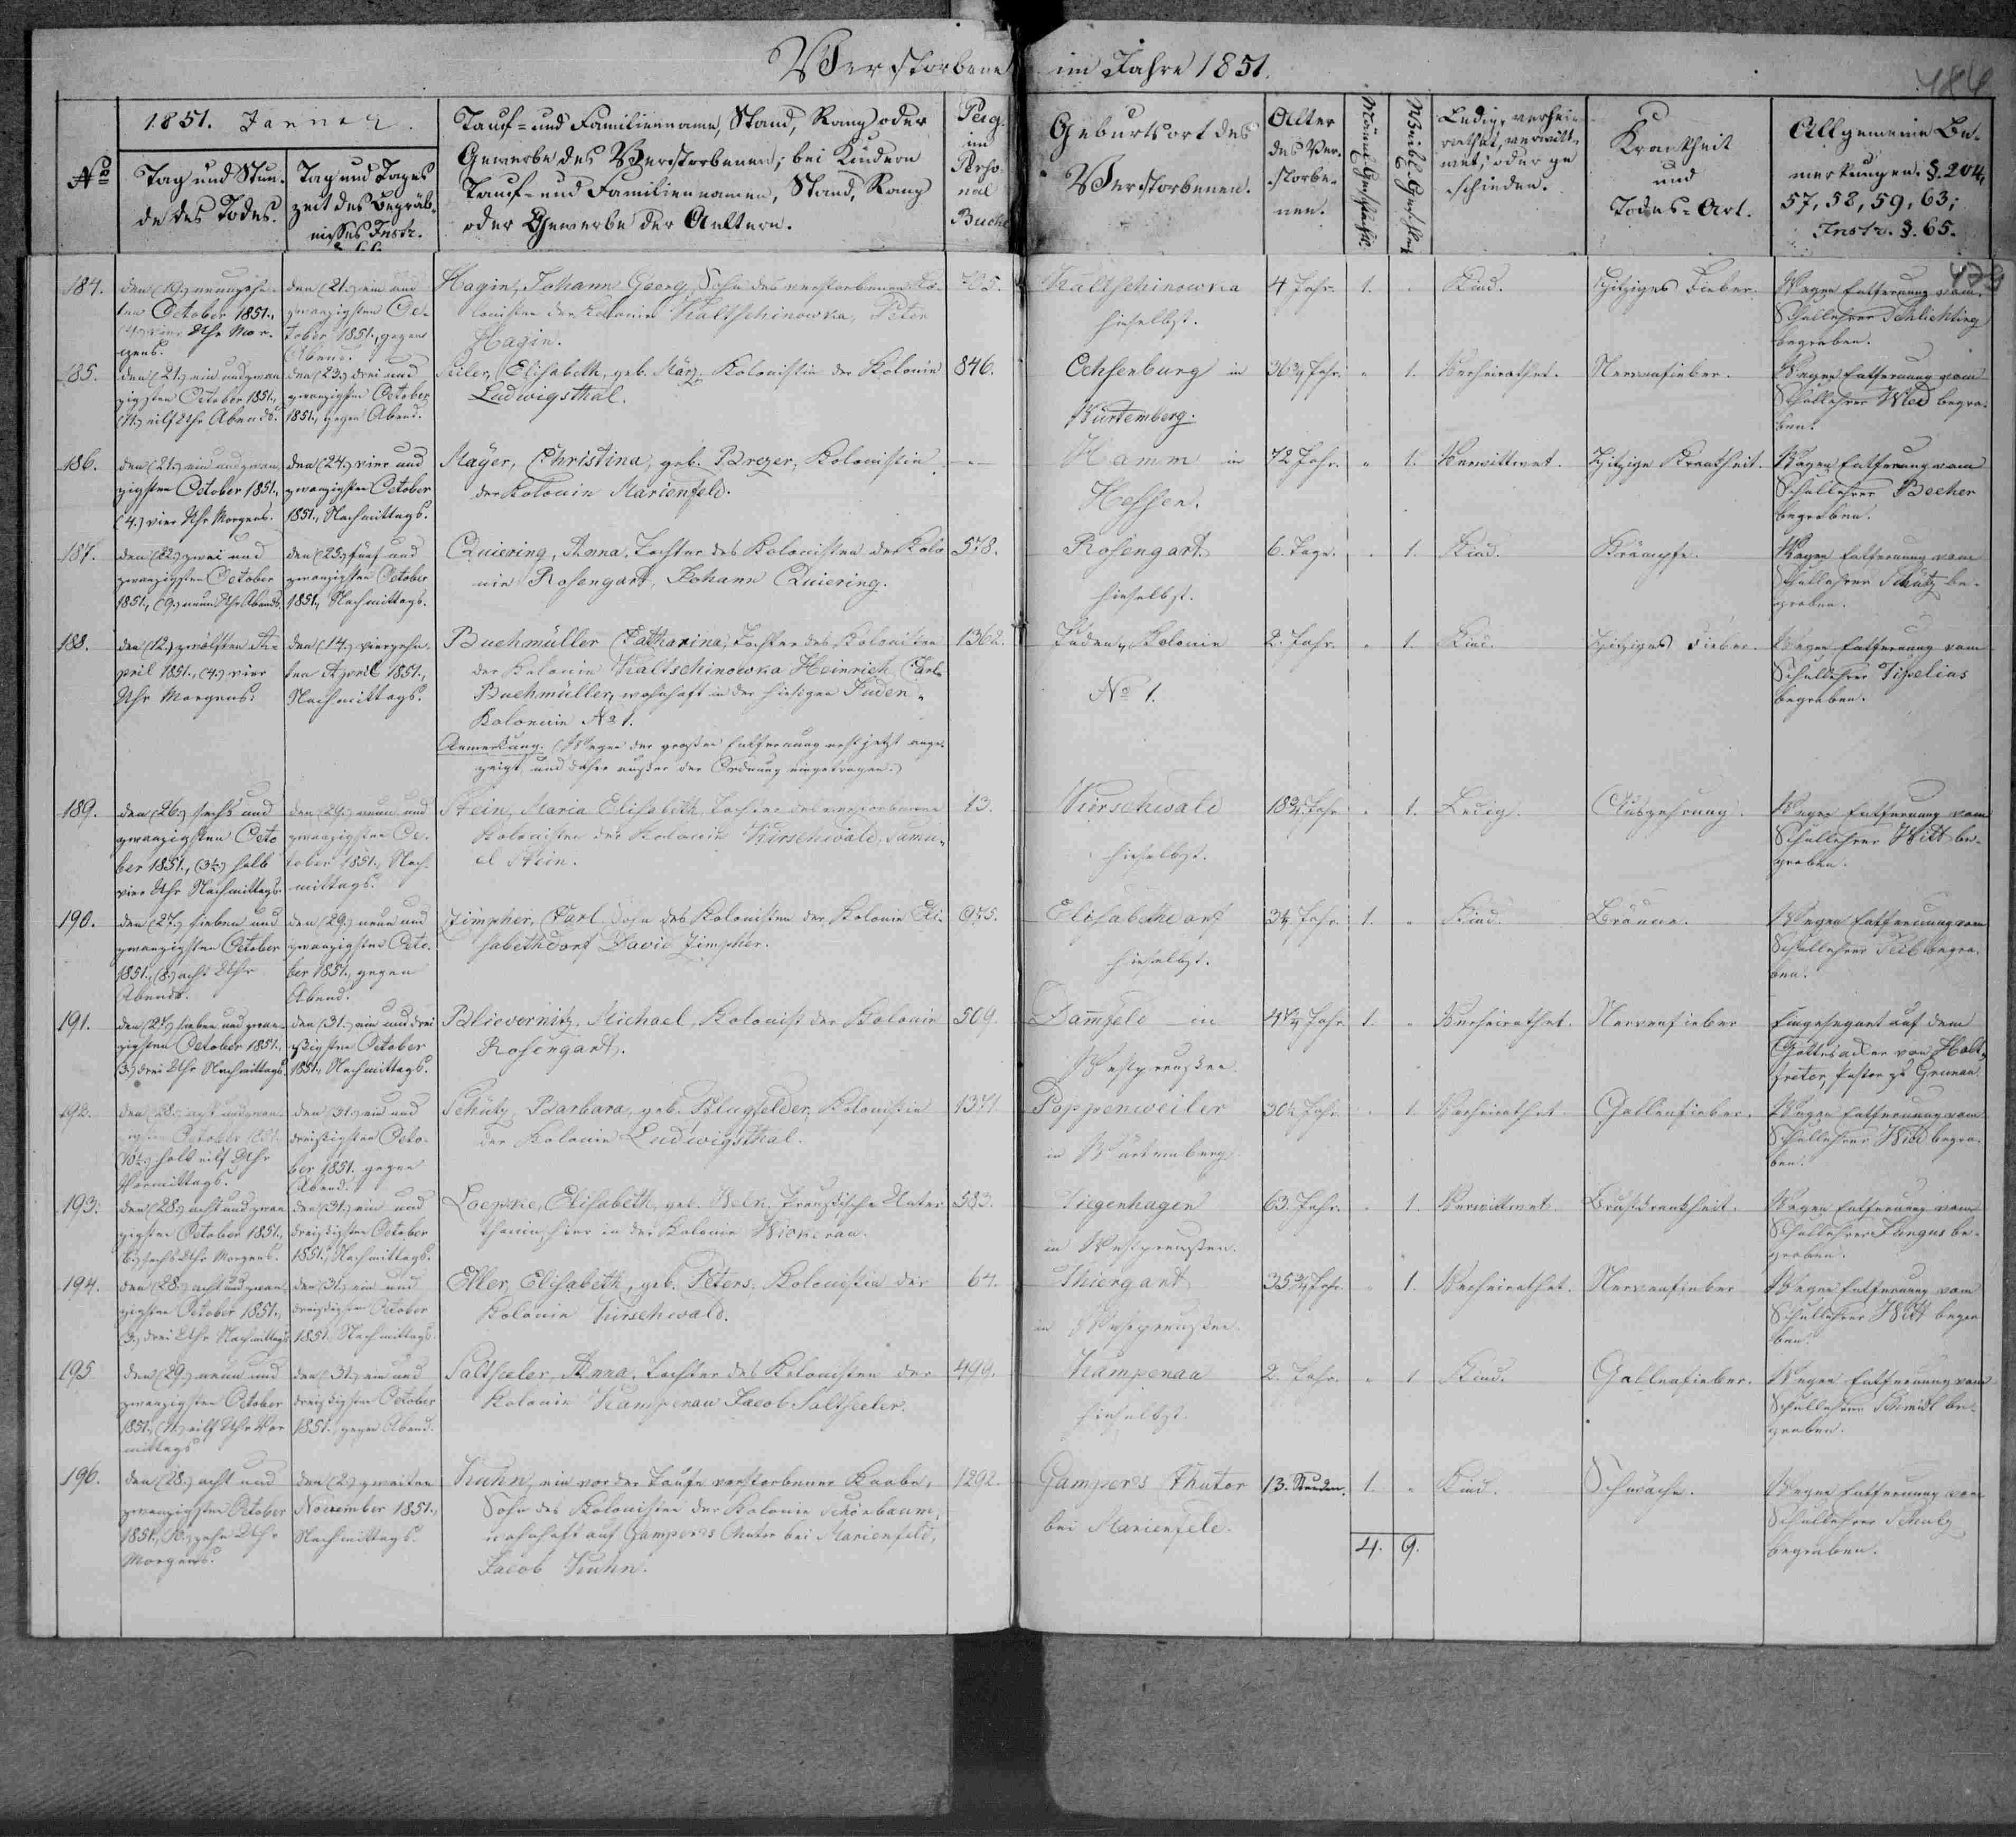 Verstorbene im Jahre 1851.
484
1851. Januar.
No
Tag und Stun-
de des Todes.
Tag und Tages
zeit des Begräb-
nisses Instr.
Tauf- und Familienname, Stand, Rang oder
Gewerbe des Verstorbenen; bei Kindern
Tauf- und Familiennamen, Stand, Rang
oder Gewerbe der Aeltern.
Pag.
im
Perso
nal
Buche
Geburtsort des
Verstorbenen.
Alter
des Ver-
storbe-
nen.
Männl. Geschlecht
Weibl. Geschlecht
Ledig, verhei-
rathet, verwitt-
wet, oder ge
schieden.
Krankheit
und
Todes-Art.
Allgemeine Be-
merkungen. §. 204,
57, 58, 59, 63;
Instr. §. 65.
184.
den (19.) neunzehn-
ten October 1851.,
(4.) vier Uhr Mor-
gens.
den (21.) ein und
zwanzigsten Oc-
tober 1851., gegen
Abend.
Hagin, Johann Georg, Sohn des verstorbenen Ko-
lonisten der Kolonie Kaltschinowka, Peter
Hagin.
705.
Kaltschinowka
hieselbst.
4 Jahr.
1.
Kind.
Hitziges Fieber.
Wegen Entfernung vom
Schullehrer Schlichting
begraben.
185.
den (21.) ein und zwan
zigsten October 1851.,
(11.) eilf Uhr Abends.
den (23.) drei und
zwanzigsten October
1851., gegen Abend.
Seiler, Elisabeth, geb. März, Kolonistin der Kolonie
Ludwigsthal.
846.
Ochsenburg in
Würtemberg.
36¾ Jahr.
1.
Verheirathet.
Nervenfieber.
Wegen Entfernung vom
Schullehrer Wied begra-
ben.
186.
den (21.) ein und zwan
zigsten October 1851.,
(4.) vier Uhr Morgens.
den (24.) vier und
zwanzigsten October
1851., Nachmittags.
Mayer, Christina, geb. Brezer, Kolonistin
der Kolonie Marienfeld.
Hamm in
Hessen.
72 Jahr.
1.
Verwittwet.
Hitzige Krankheit.
Wegen Entfernung vom
Schullehrer Becher
begraben.
187.
den (22.) zwei und
zwanzigsten October
1851., (9.) neun Uhr Abends.
den (25.) fünf und
zwanzigsten October
1851., Nachmittags.
Quiering, Anna, Tochter des Kolonisten der Kolo
nie Rosengart, Johann Quiering.
578.
Rosengart
hieselbst.
6. Tage.
1.
Kind.
Krämpfe.
Wegen Entfernung vom
Schullehrer Schütz be-
graben.
188.
den (12.) zwölften A-
pril 1851., (4.) vier
Uhr Morgens.
den (14.) vierzehn-
ten April 1851.,
Nachmittags.
Buchmüller Catharina, Tochter des Kolonisten
der Kolonie Kaltschinowka Heinrich Carl
Buchmüller, wohnhaft in der hiesigen Juden-
Kolonie No 1.
Anmerkung. (Wegen der großen Entfernung erst jetzt ange-
zeigt, und daher außer der Ordnung eingetragen.)
1362.
Juden-Kolonie
No 1.
2. Jahr.
1.
Kind.
Hitziges Fieber.
Wegen Entfernung vom
Schullehrer
begraben.
189.
den (26.) sechs und
zwanzigsten Octo
ber 1851., (3½.) halb
vier Uhr Nachmittags.
den (29.) neun und
zwanzigsten Oc-
tober 1851., Nach-
mittags.
Stein, Maria Elisabeth, Tochter des verstorbenen
Kolonisten der Kolonie Kirschwald, Samu-
el Stein.
13.
Kirschwald
hieselbst.
18¾ Jahr
1.
Ledig.
Auszehrung.
Wegen Entfernung vom
Schullehrer Witt be-
graben.
190.
den (27.) sieben und
zwanzigsten October
1851., (8.) acht Uhr
Abends.
den (29.) neun und
zwanzigsten Octo-
ber 1851., gegen
Abend.
Zimpher, Carl, Sohn des Kolonisten der Kolonie Eli-
sabethdorf David Zimpher.
975.
Elisabethdorf
hieselbst.
3¼ Jahr.
1.
Kind.
Bräune.
Wegen Entfernung vom
Schullehrer begra-
ben.
191.
den (27.) sieben und zwan-
zigsten October 1851.,
(3.) drei Uhr Nachmittags.
den (31.) ein und drei
ßigsten October
1851., Nachmittags.
Blievernitz, Michael, Kolonist der Kolonie
Rosengart.
509.
Damfeld in
Westpreußen.
1.
Verheirathet.
Nervenfieber
Eingesegnet auf dem
Gottesacker von Holt-
freter, Pastor zu Grunau
192.
den (28.) acht und zwan-
zigsten October 1851.
(10½.) halb eilf Uhr
Vormittags.
den (31.) ein und
dreißigsten Octo-
ber 1851. gegen
Abend.
Schütz, Barbara, geb. Pflugfelder, Kolonistin
der Kolonie Ludwigsthal.
1371.
Poppenweiler
in Würtemberg.
30½ Jahr.
1.
Verheirathet.
Gallenfieber.
Wegen Entfernung vom
Schullehrer Wied begra-
ben.
193.
den (28.) acht und zwan
zigsten October 1851.,
6.) sechs Uhr Morgens.
den (31.) ein und
dreißigsten October
1851., Nachmittags.
Loepke, Elisabeth, geb. Preußische Unter
thanin, hier in der Kolonie Wickerau.
583.
Tiegenhagen
in Westpreußen.
63. Jahr.
1.
Verwittwet.
Brustkrankheit.
Wegen Entfernung vom
Schullehrer Fungus be-
graben.
194.
den (28.) acht und zwan
zigsten October 1851.,
(3.) drei Uhr Nachmittags
den (31.) ein und
dreißigsten October
1851. Nachmittags.
Eller, Elisabeth, geb. Peters, Kolonistin der
Kolonie Kirschwald.
64.
Thiergart
in Westpreußen.
35¾ Jahr.
1.
Verheirathet.
Nervenfieber
Wegen Entfernung vom
Schullehrer Witt begra
ben.
195
den (29.) neun und
zwanzigsten October
1851., (11.) eilf Uhr Vor
mittags
den (31.) ein und
dreißigsten October
1851., gegen Abend.
Saltzseeler, Anna, Tochter des Kolonisten der
Kolonie Kampenau Jacob Saltzseeler.
499.
Kampenau
hieselbst.
2. Jahr.
1
Kind.
Gallenfieber.
Wegen Entfernung vom
Schullehrer Schmidt be-
graben.
196.
den (28.) acht und
zwanzigsten October
1851., 10.) zehn Uhr
Morgens.
den (2.) zweiten
November 1851.,
Nachmittags.
Kuhn, ein vor der Taufe verstorbener Knabe,
Sohn des Kolonisten der Kolonie Schönbaum,
wohnhaft auf Gampers Chutor bei Marienfeld,
Jacob Kuhn.
1292.
Gampers Chutor
bei Marienfeld.
13. Stunden.
1.
Kind.
Schwäche.
Wegen Entfernung vom
Schullehrer Schulz
begraben.
4. 9.